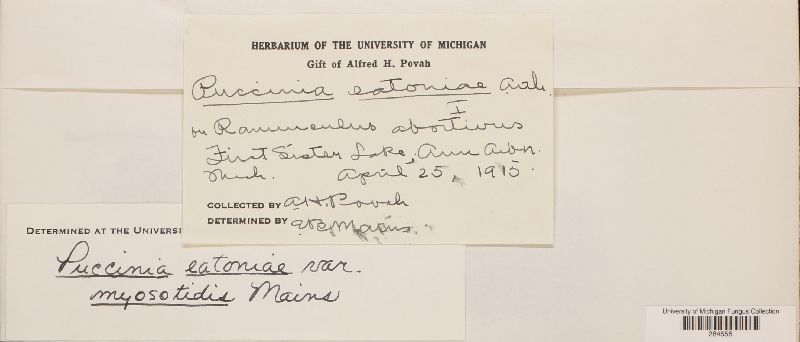 HERBARIUM OF THE UNIVERSITY OF MICHIGAN
Gift of Alfred H. Povah
Puccinia eatoniae Arth.
I
on Ranunculus abortivus
First Sister Lake, Ann Arbor.
Mich. April 25, 1915.
COLLECTED BY A.H. Povah
DETERMINED BY E.B. Mains.
DETERMINED AT THE UNIVERSI
Puccinia eatoniae var.
myosotidis Mains
University of Michigan Fungus Collection